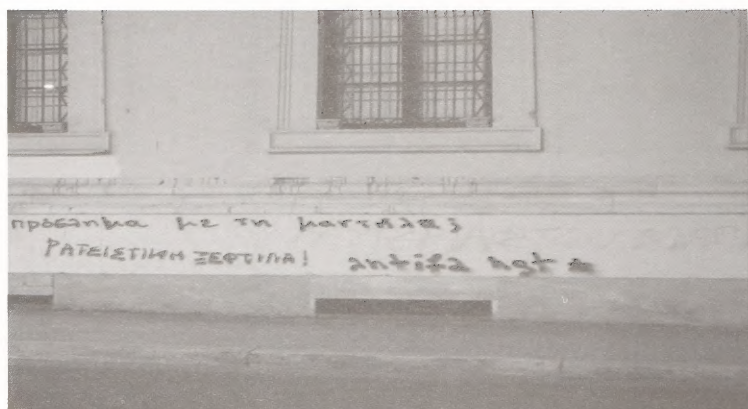 προβλημα με τη μαντηλα;
ΡΑΤΣΙΣΤΙΚΗ ΞΕΦΤΙΛΑ! antifa ngt